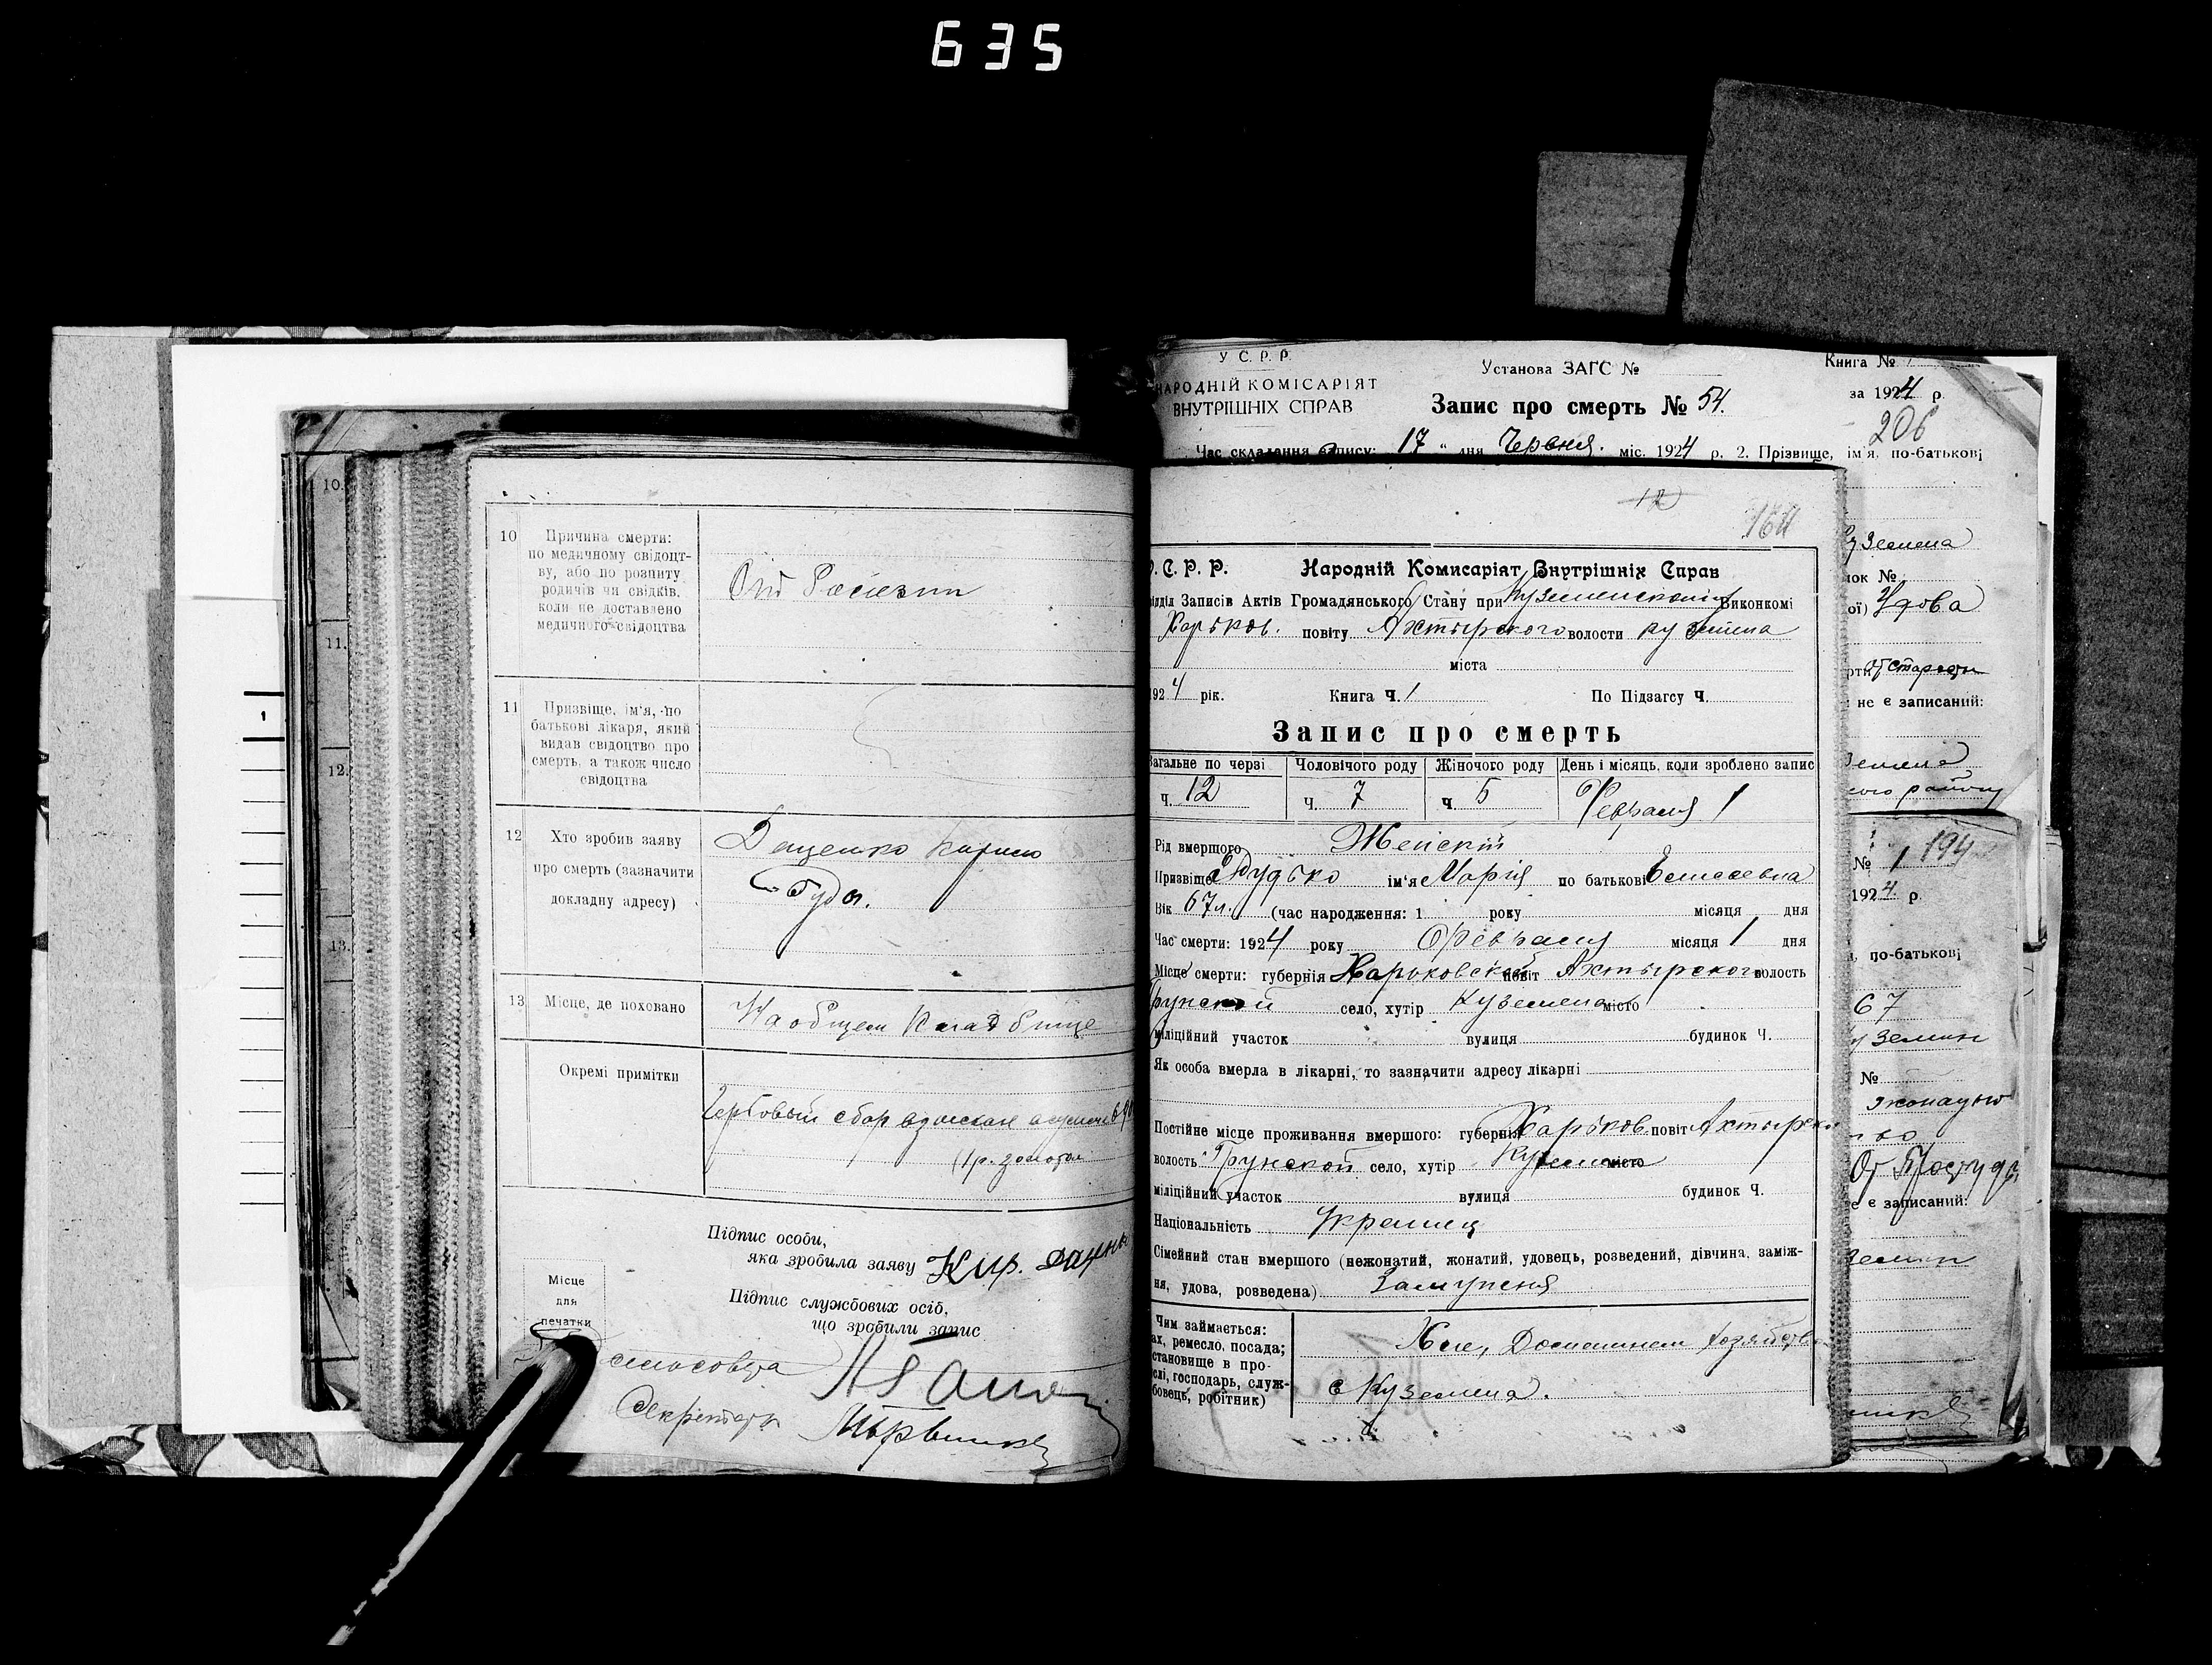 635
10.
11.
12.
13.
1
10
Причина смерти:
по медичному свідоцт-
ву, або по розпиту
родичів чи свідків,
коли не доставлено
медичного свідоцтва
11
Призвіще, ім'я, по
батькові лікаря, який
видав свідоцтво про
смерть, а також число
свідоцтва
12
Хто зробив заяву
про смерть (зазначити
докладну адресу)
Даценко Кирило
13
Місце, де поховано
На общем Кладбище
Окремі примітки
Гербовый сбор взыскан
(1р. золотом
Підпис особи,
яка зробила заяву Кир.
Підпис службових осіб,
що зробили запис
Місце
для
печатки
Секретарь
У С. Р. Р.
НАРОДНІЙ КОМІСАРІЯТ
ВНУТРІШНІХ СПРАВ
Установа ЗАГС №
Запис про смерть № 54.
Книга №
за 1924 р.
206
Час складання запису: 17 " дня Червня. міс. 1924 р. 2. Прізвище, ім'я, по-батькові
12
164
С. Р. Р. Народній Комисаріят Внутрішніх Справ
Відділ Записів Актів Громадянського Стану при Куземенском Виконкомі
Харьков. повіту Ахтырского волости Куземена
міста
1924 рік. Книга Ч. 1 По Підзагсу Ч.
Запис про смерть
Загальне по черзі Чоловічого роду Жіночого роду День і місяць, коли зроблено запис
ч. 12 Ч. 7 ч. 5 Февраля 1
Рід вмершого Женскій
Призвіще ім'я Марія по батькові
Вік 67 л. (час народження: 1 року місяця дня
Час смерти: 1924 року Февраля місяця 1 дня
Місце смерти: губернія Харьковской повіт Ахтырского волость
Грунской село, хутір Куземена місто
міліційний участок вулиця будинок Ч.
Як особа вмерла в лікарні, то зазначити адресу лікарні
Постійне місце проживання вмершого: губернія Харьков. повіт Ахтырско
волость Грунской село, хутір Куземена місто
міліційний участок вулиця будинок Ч.
Національність Украинец
Сімейний стан вмершого (нежонатий, жонатий, удовець, розведений, дівчина, заміж-
ня, удова, розведена) Замужняя
Чим займається:
ах, ремесло, посада;
становище в про-
слі, господарь, служ-
бовець, робітник)
Домашнем хозяйстве
с Куземена.
Куземена
нок №
ої) Удова
рти От Старости
не є записаний:
ского району
№ 1
194
1924 р.
по-батькові
67
Куземин
№
От Простуды
є записаний: